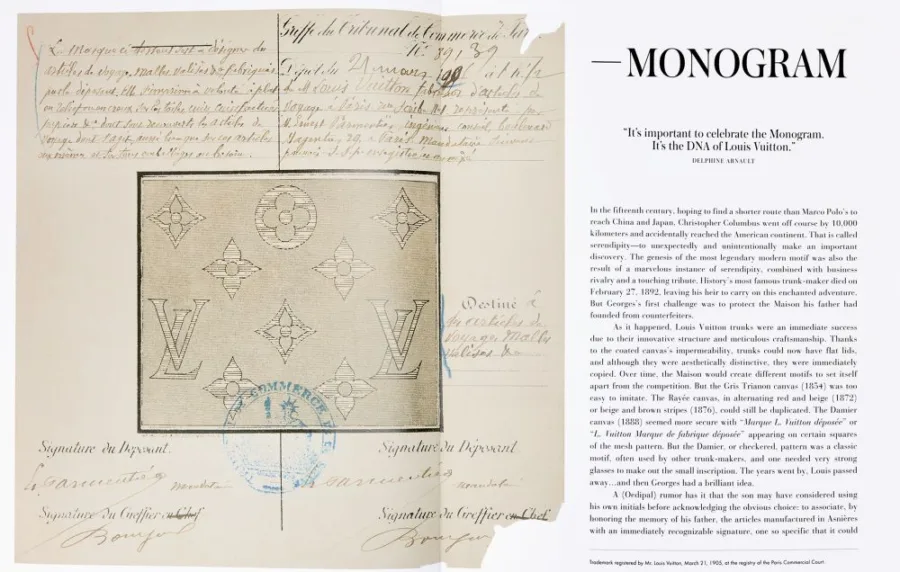 Greffe du Tribunal de Commerce de
No. 39139
La Marque ci
articles de voyage, Malles, Valises, &a fabriqués
par le déposant. Elle s'imprime à volonté à plat
voyage dont s'agit, ainsi que sur ces articles
Dépôt du 21 mars
de M. Louis Vuitton fabricant d'articles de
voyage à Paris rue Scribe
M. Ernest Parmentier, ingénieur conseil, boulevard
Magenta, à Paris, Mandataire suivant
LV
LV
Destiné à
des articles de
voyage, Malles
Valises &a
COMMERCE
Signature du Déposant.
Signature du Déposant.
mandataire
mandataire
Signature du Greffier en Chef
Signature du Greffier en Chef
—MONOGRAM
“It’s important to celebrate the Monogram.
It’s the DNA of Louis Vuitton.”
DELPHINE ARNAULT
In the fifteenth century, hoping to find a shorter route than Marco Polo’s to
reach China and Japan, Christopher Columbus went off course by 10,000
kilometers and accidentally reached the American continent. That is called
serendipity—to unexpectedly and unintentionally make an important
discovery. The genesis of the most legendary modern motif was also the
result of a marvelous instance of serendipity, combined with business
rivalry and a touching tribute. History’s most famous trunk-maker died on
February 27, 1892, leaving his heir to carry on this enchanted adventure.
But Georges’s first challenge was to protect the Maison his father had
founded from counterfeiters.
As it happened, Louis Vuitton trunks were an immediate success
due to their innovative structure and meticulous craftsmanship. Thanks
to the coated canvas’s impermeability, trunks could now have flat lids,
and although they were aesthetically distinctive, they were immediately
copied. Over time, the Maison would create different motifs to set itself
apart from the competition. But the Gris Trianon canvas (1854) was too
easy to imitate. The Rayée canvas, in alternating red and beige (1872)
or beige and brown stripes (1876), could still be duplicated. The Damier
canvas (1888) seemed more secure with “Marque L. Vuitton déposée” or
“L. Vuitton Marque de fabrique déposée” appearing on certain squares
of the mesh pattern. But the Damier, or checkered, pattern was a classic
motif, often used by other trunk-makers, and one needed very strong
glasses to make out the small inscription. The years went by, Louis passed
away…and then Georges had a brilliant idea.
A (Oedipal) rumor has it that the son may have considered using
his own initials before acknowledging the obvious choice: to associate, by
honoring the memory of his father, the articles manufactured in Asnières
with an immediately recognizable signature, one so specific that it could
Trademark registered by Mr. Louis Vuitton, March 21, 1905, at the registry of the Paris Commercial Court.